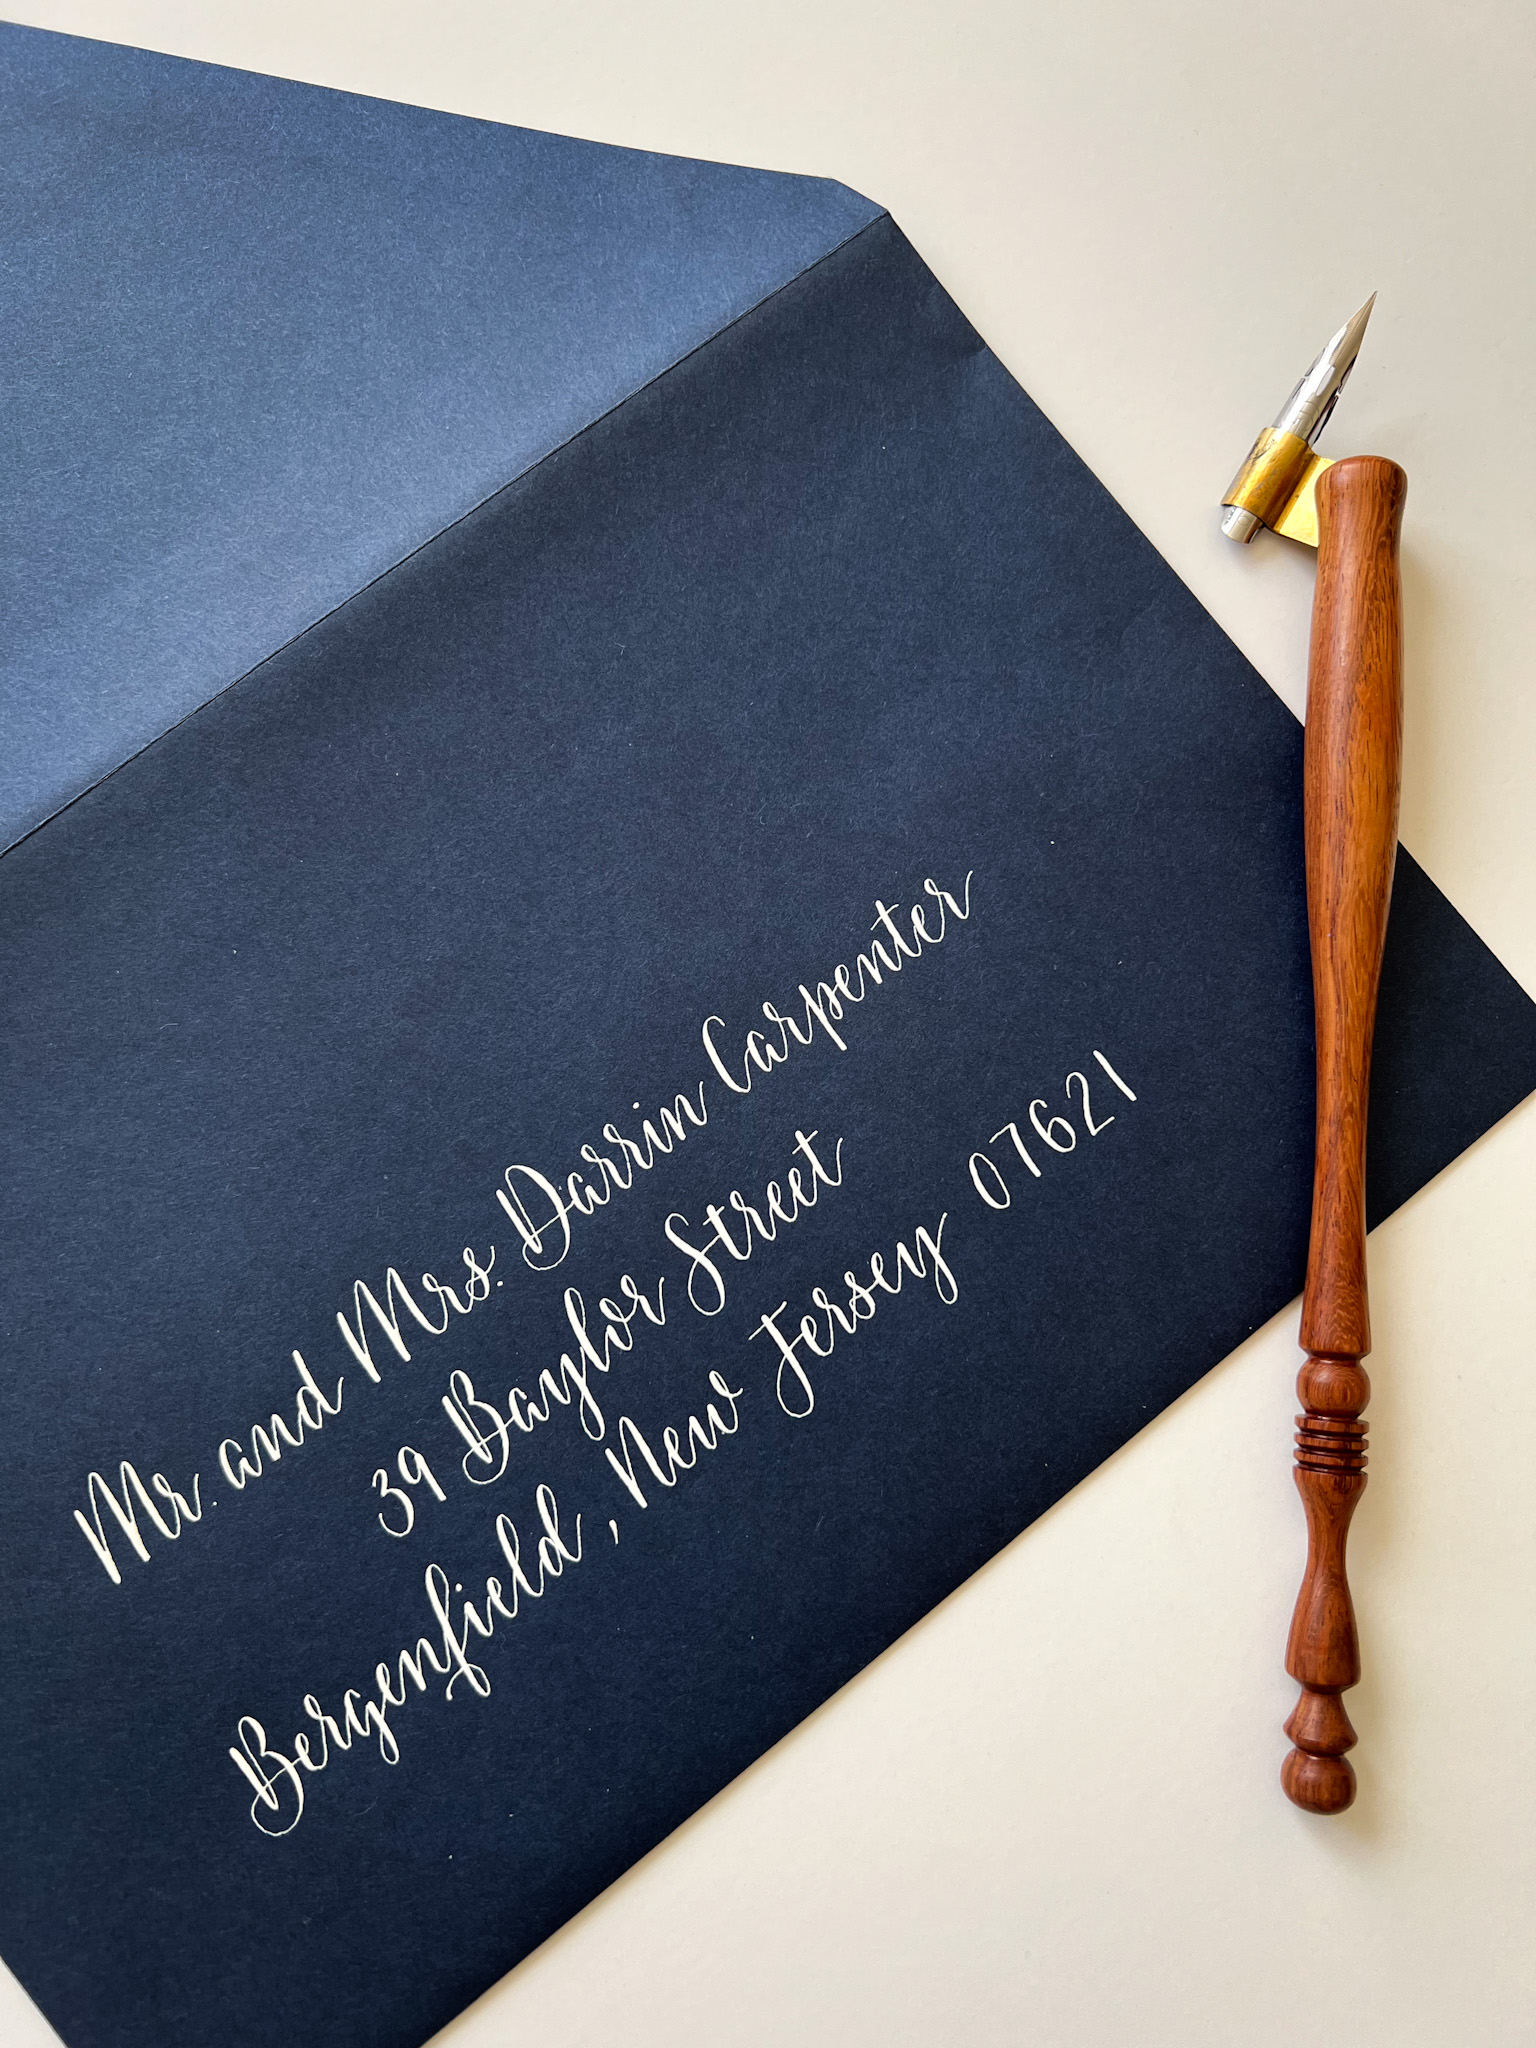 Mr. and Mrs. Darrin Carpenter
39 Baylor Street
Bergenfield, New Jersey 07621